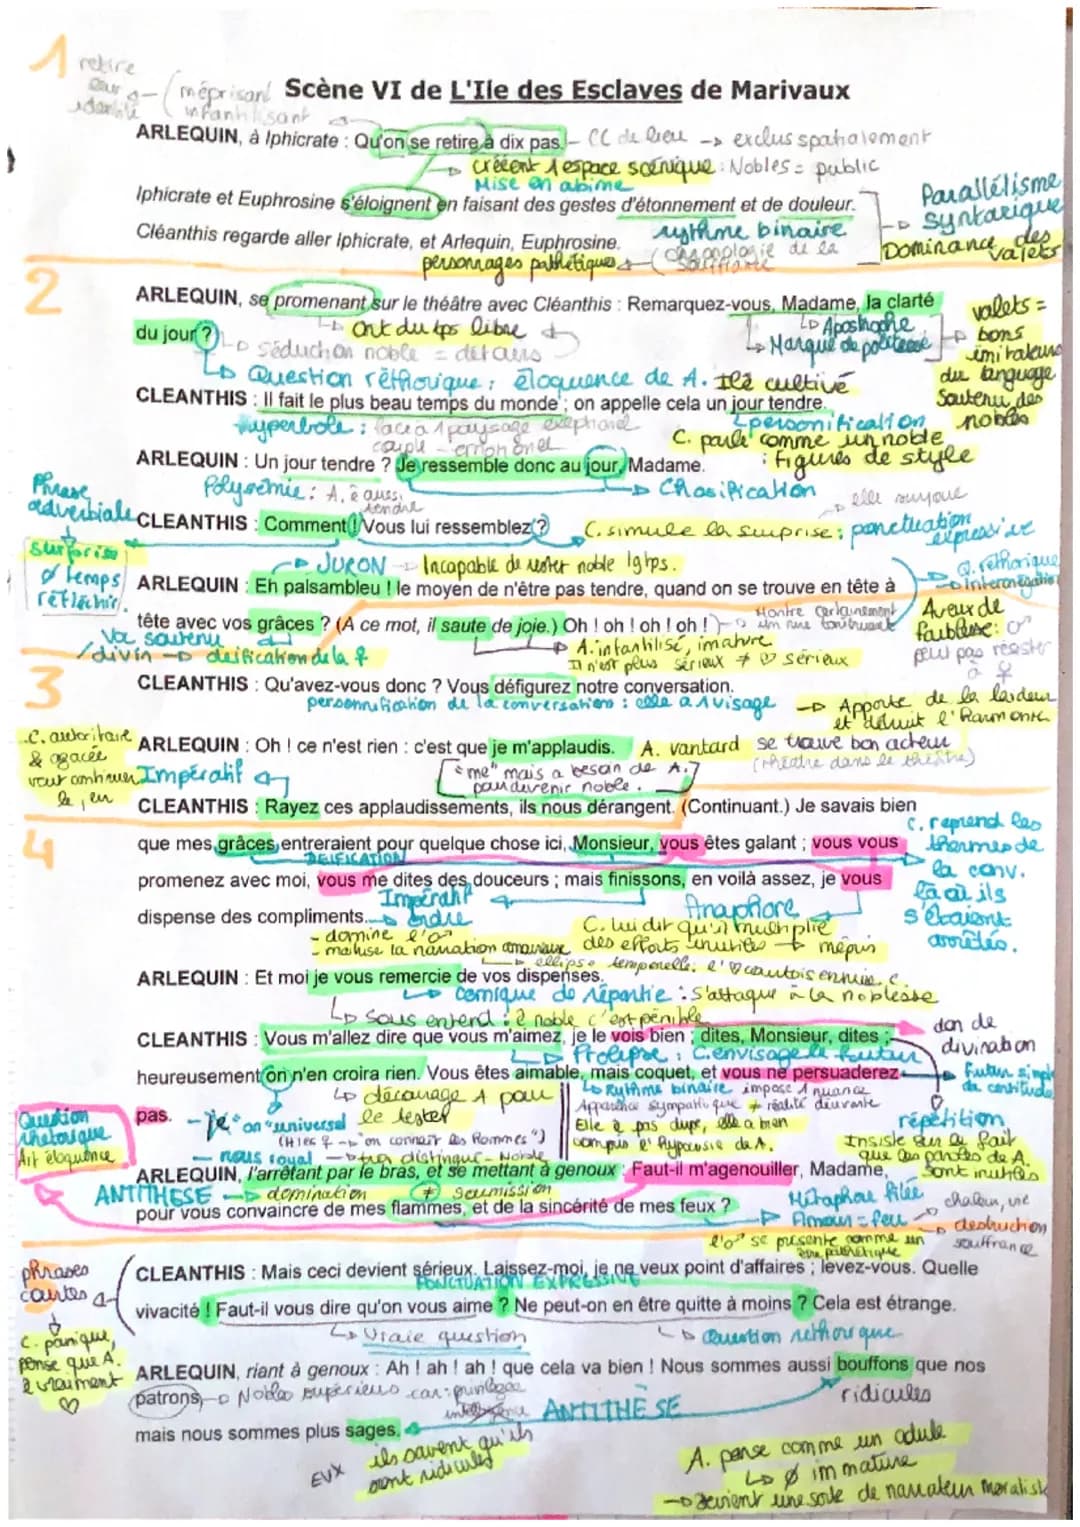 1
retire
leur
identité
(méprisant
infantilisant
Scène VI de L'Ile des Esclaves de Marivaux
ARLEQUIN, à Iphicrate : Qu'on se retire à dix pas. CC de lieu → exclus spatialement
créent 1 espace scénique : Nobles = public
Mise en abime
Iphicrate et Euphrosine s'éloignent en faisant des gestes d'étonnement et de douleur.
Parallélisme
syntaxique
Dominance des
valets
Cléanthis regarde aller Iphicrate, et Arlequin, Euphrosine.
rythme binaire
personnages pathétiques
2
ARLEQUIN, se promenant sur le théâtre avec Cléanthis : Remarquez-vous, Madame, la clarté
du jour ?
Ont du tps libre
Apostrophe
Marque de politesse
valets =
bons
imitateurs
du language
soutenu des
nobles
Séduction noble = détours
Question réthorique : éloquence de A. Il è cultivé
CLEANTHIS : Il fait le plus beau temps du monde ; on appelle cela un jour tendre.
Hyperbole : face à 1 paysage
personnification
C. parle comme un noble
: figures de style
ARLEQUIN : Un jour tendre ? Je ressemble donc au jour, Madame.
Polysémie : A. è aussi
tendre
Chosification
Phrase
adverbiale
CLEANTHIS : Comment ! Vous lui ressemblez ?
C. simule la surprise : ponctuation
expressive
surprise
Ø temps
réfléchir.
JURON → Incapable de rester noble lgtps.
Q. réthorique
ARLEQUIN : Eh palsambleu ! le moyen de n'être pas tendre, quand on se trouve en tête à
tête avec vos grâces ? (A ce mot, il saute de joie.) Oh ! oh ! oh ! oh !
Aveux de
faiblesse : ♂
peut pas résister
à ♀
Voc soutenu
/divin → déification de la ♀
A. infantilisé, imature
Il n'est plus sérieux ≠ ♡ sérieux
3
CLEANTHIS : Qu'avez-vous donc ? Vous défigurez notre conversation.
personnification de la conversation : elle a 1 visage → Apporte de la laideur
et détruit l'harmonie
C. autoritaire
& agacée
veut continuer
le jeu
ARLEQUIN : Oh ! ce n'est rien : c'est que je m'applaudis. A. vantard se trouve bon acteur
(théâtre dans le théâtre)
Impératif
"me" mais a besoin de A.
pour devenir noble.
CLEANTHIS : Rayez ces applaudissements, ils nous dérangent. (Continuant.) Je savais bien
4
que mes grâces entreraient pour quelque chose ici, Monsieur, vous êtes galant ; vous vous
DEIFICATION
C. reprend les
thermes de
la conv.
là où ils
s'étaient
arrêtés.
promenez avec moi, vous me dites des douceurs ; mais finissons, en voilà assez, je vous
Impératif
ordre
Anaphore
dispense des compliments.
C. lui dit qu'il multiplie
des efforts inutiles → mépris
- domine l'♂
- maîtrise la narration amoureuse
ellipse temporelle : l'♡ courtois ennuie C.
ARLEQUIN : Et moi je vous remercie de vos dispenses.
comique de répartie : s'attaque à la noblesse
Sous entend : ê noble c'est pénible
CLEANTHIS : Vous m'allez dire que vous m'aimez, je le vois bien ; dites, Monsieur, dites ;
don de
divination
Prolepse : C. envisage le futur
heureusement on n'en croira rien. Vous êtes aimable, mais coquet, et vous ne persuaderez
Futur simple
de certitude
décourage A pour
le tester
Rythme binaire impose 1 nuance
Apparence sympathique ≠ réalité décevante
Elle è pas dupe, elle a bien
compris l'hypocrisie de A.
pas.
"on" universel
- nous royal
répétition
Insiste sur le fait
que les paroles de A.
sont inutiles
Question
rhétorique
Art éloquence
ARLEQUIN, l'arrêtant par le bras, et se mettant à genoux : Faut-il m'agenouiller, Madame,
ANTITHESE → domination ≠ soumission
pour vous convaincre de mes flammes, et de la sincérité de mes feux ?
Métaphore filée
Amour = feu
chaleur, vie
destruction
souffrance
l'♂ se présente comme un
être pathétique
phrases
courtes
C. panique,
pense que A.
è vraiment
♡
CLEANTHIS : Mais ceci devient sérieux. Laissez-moi, je ne veux point d'affaires ; levez-vous. Quelle
PONCTUATION EXPRESSIVE
vivacité ! Faut-il vous dire qu'on vous aime ? Ne peut-on en être quitte à moins ? Cela est étrange.
Vraie question
Question réthorique
ARLEQUIN, riant à genoux : Ah ! ah ! ah ! que cela va bien ! Nous sommes aussi bouffons que nos
patrons,
Nobles supérieurs car : privilèges
ridicules
ANTITHÈSE
mais nous sommes plus sages.
EUX
ils savent qu'ils
sont ridicules
A. pense comme un adulte
Ø immature
→ devient une sorte de narrateur moraliste